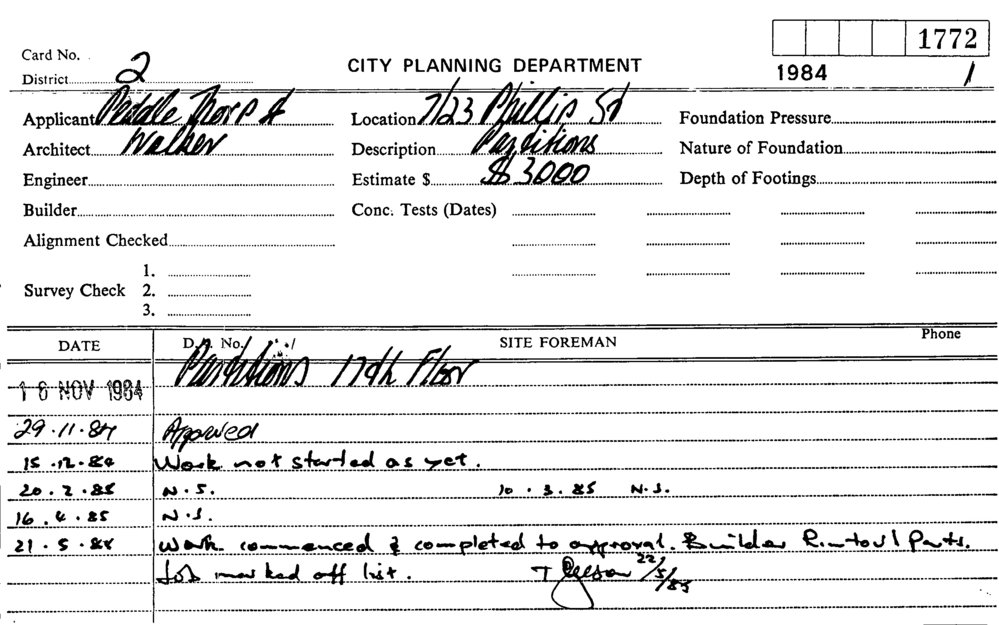 1772
Card No.
District 2
CITY PLANNING DEPARTMENT
1984 /
Applicant Peddle Thorp &
Location 7/23 Phillip St
Foundation Pressure
Architect Walker
Description Partitions
Nature of Foundation
Engineer
Estimate $ $3000
Depth of Footings
Builder
Conc. Tests (Dates)
Alignment Checked
1.
Survey Check 2.
3.
DATE D.A. No. SITE FOREMAN Phone
16 NOV 1984 Partitions 17th Floor
29.11.84 Approved
15.12.84 Work not started as yet.
20.2.85 N.S. 10.3.85 N.S.
16.4.85 N.S.
21.5.85 Work commenced & completed to approval. Builder Rintoul Parts.
Job marked off list. 22/5/85